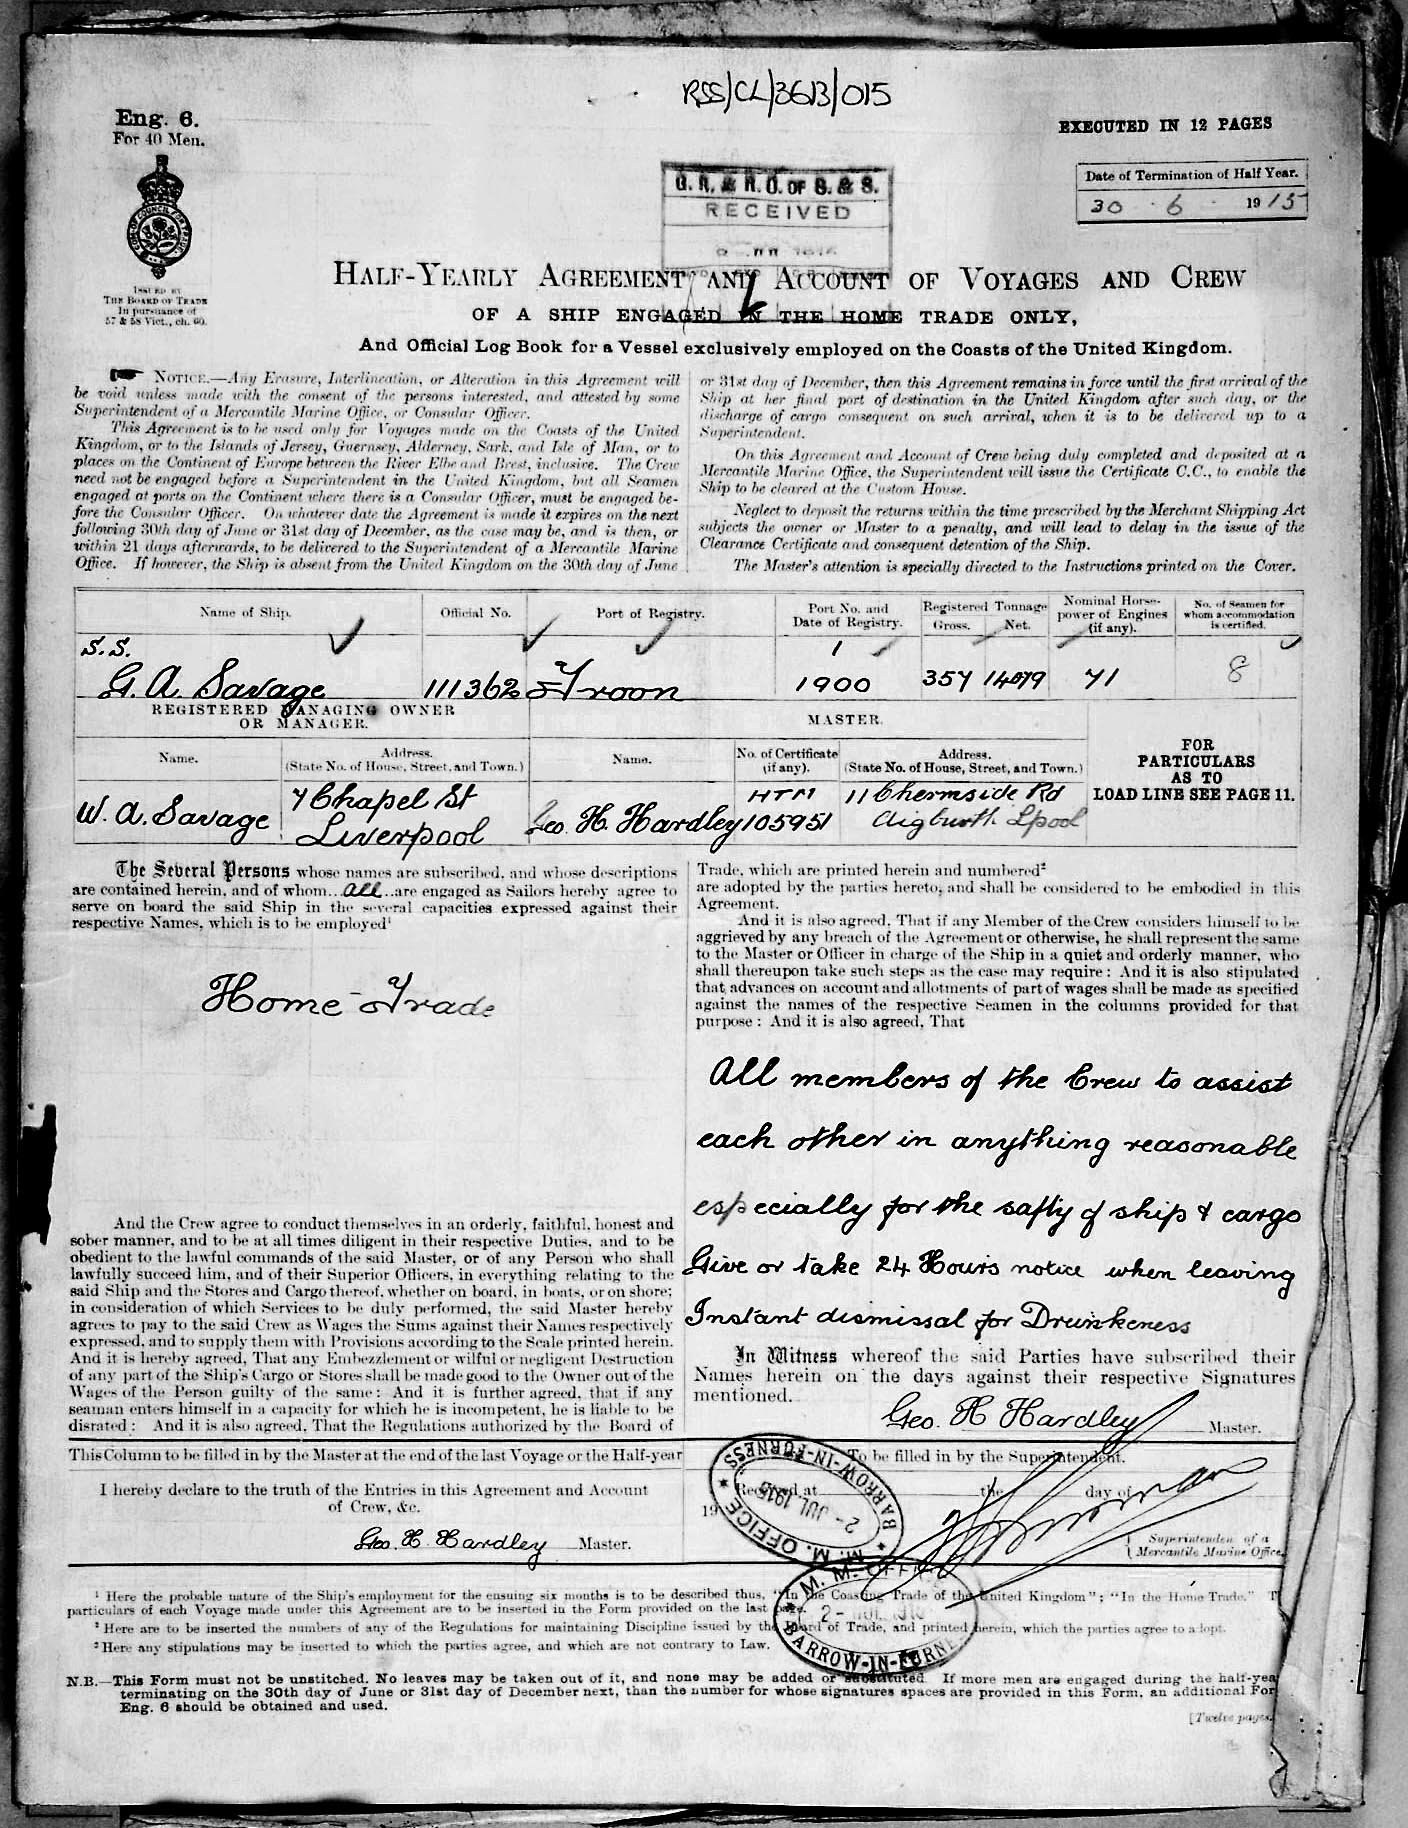 RSS/CL/3613/015
Eng. 6.
For 40 Men.
EXECUTED IN 12 PAGES
Date of Termination of Half Year.
30 . 6 . 1915
G. R. & R. O. OF S. & S.
RECEIVED
ISSUED BY
THE BOARD OF TRADE
In pursuance of
57 & 58 Vict., ch. 60.
HALF-YEARLY AGREEMENT AND ACCOUNT OF VOYAGES AND CREW
OF A SHIP ENGAGED IN THE HOME TRADE ONLY,
And Official Log Book for a Vessel exclusively employed on the Coasts of the United Kingdom.
NOTICE.—Any Erasure, Interlineation, or Alteration in this Agreement will
be void unless made with the consent of the persons interested, and attested by some
Superintendent of a Mercantile Marine Office, or Consular Officer.
This Agreement is to be used only for Voyages made on the Coasts of the United
Kingdom, or to the Islands of Jersey, Guernsey, Alderney, Sark, and Isle of Man, or to
places on the Continent of Europe between the River Elbe and Brest, inclusive. The Crew
need not be engaged before a Superintendent in the United Kingdom, but all Seamen
engaged at ports on the Continent where there is a Consular Officer, must be engaged be-
fore the Consular Officer. On whatever date the Agreement is made it expires on the next
following 30th day of June or 31st day of December, as the case may be, and is then, or
within 21 days afterwards, to be delivered to the Superintendent of a Mercantile Marine
Office. If however, the Ship is absent from the United Kingdom on the 30th day of June
or 31st day of December, then this Agreement remains in force until the first arrival of the
Ship at her final port of destination in the United Kingdom after such day, or the
discharge of cargo consequent on such arrival, when it is to be delivered up to a
Superintendent.
On this Agreement and Account of Crew being duly completed and deposited at a
Mercantile Marine Office, the Superintendent will issue the Certificate C.C., to enable the
Ship to be cleared at the Custom House.
Neglect to deposit the returns within the time prescribed by the Merchant Shipping Act
subjects the owner or Master to a penalty, and will lead to delay in the issue of the
Clearance Certificate and consequent detention of the Ship.
The Master's attention is specially directed to the Instructions printed on the Cover.
Name of Ship. Official No. Port of Registry. Port No. and Date of Registry. Registered Tonnage Gross. Net. Nominal Horse-power of Engines (if any). No. of Seamen for whom accommodation is certified.
S.S. 1
G. A Savage 111362 Troon 1900 357 14079 71 8
REGISTERED MANAGING OWNER
OR MANAGER.
MASTER.
Name. Address. (State No. of House, Street, and Town.) Name. No. of Certificate (if any). Address. (State No. of House, Street, and Town.)
FOR
PARTICULARS
AS TO
LOAD LINE SEE PAGE 11.
7 Chapel St HTM 11 Chermside Rd
W. A. Savage Liverpool Geo. H. Hardley 105951 Aigburth Lpool
The Several Persons whose names are subscribed, and whose descriptions
are contained herein, and of whom All are engaged as Sailors hereby agree to
serve on board the said Ship in the several capacities expressed against their
respective Names, which is to be employed¹
Home-Trade
And the Crew agree to conduct themselves in an orderly, faithful, honest and
sober manner, and to be at all times diligent in their respective Duties, and to be
obedient to the lawful commands of the said Master, or of any Person who shall
lawfully succeed him, and of their Superior Officers, in everything relating to the
said Ship and the Stores and Cargo thereof, whether on board, in boats, or on shore;
in consideration of which Services to be duly performed, the said Master hereby
agrees to pay to the said Crew as Wages the Sums against their Names respectively
expressed, and to supply them with Provisions according to the Scale printed herein.
And it is hereby agreed, That any Embezzlement or wilful or negligent Destruction
of any part of the Ship's Cargo or Stores shall be made good to the Owner out of the
Wages of the Person guilty of the same: And it is further agreed, that if any
seaman enters himself in a capacity for which he is incompetent, he is liable to be
disrated: And it is also agreed, That the Regulations authorized by the Board of
Trade, which are printed herein and numbered²
are adopted by the parties hereto, and shall be considered to be embodied in this
Agreement.
And it is also agreed, That if any Member of the Crew considers himself to be
aggrieved by any breach of the Agreement or otherwise, he shall represent the same
to the Master or Officer in charge of the Ship in a quiet and orderly manner, who
shall thereupon take such steps as the case may require: And it is also stipulated
that advances on account and allotments of part of wages shall be made as specified
against the names of the respective Seamen in the columns provided for that
purpose: And it is also agreed, That
All members of the Crew to assist
each other in anything reasonable
especially for the safty of ship & cargo
Give or take 24 Hours notice when leaving
Instant dismissal for Drunkeness
In Witness whereof the said Parties have subscribed their
Names herein on the days against their respective Signatures
mentioned.
Geo. H Hardley Master.
This Column to be filled in by the Master at the end of the last Voyage or the Half-year
I hereby declare to the truth of the Entries in this Agreement and Account
of Crew, &c.
Geo. H. Hardley Master.
To be filled in by the Superintendent.
Received at the day of
19
Superintendent of a
Mercantile Marine Office.
M. M. OFFICE
2 - JUL 1915
BARROW-IN-FURNESS
M. M. OFFICE
2 - JUL 1915
BARROW-IN-FURNESS
¹ Here the probable nature of the Ship's employment for the ensuing six months is to be described thus, "In the Coasting Trade of the United Kingdom"; "In the Home Trade." T
particulars of each Voyage made under this Agreement are to be inserted in the Form provided on the last page.
² Here are to be inserted the numbers of any of the Regulations for maintaining Discipline issued by the Board of Trade, and printed herein, which the parties agree to adopt.
³ Here any stipulations may be inserted to which the parties agree, and which are not contrary to Law.
N.B.—This Form must not be unstitched. No leaves may be taken out of it, and none may be added or substituted. If more men are engaged during the half-yea
terminating on the 30th day of June or 31st day of December next, than the number for whose signatures spaces are provided in this Form, an additional For
Eng. 6 should be obtained and used.
[Twelve pages.